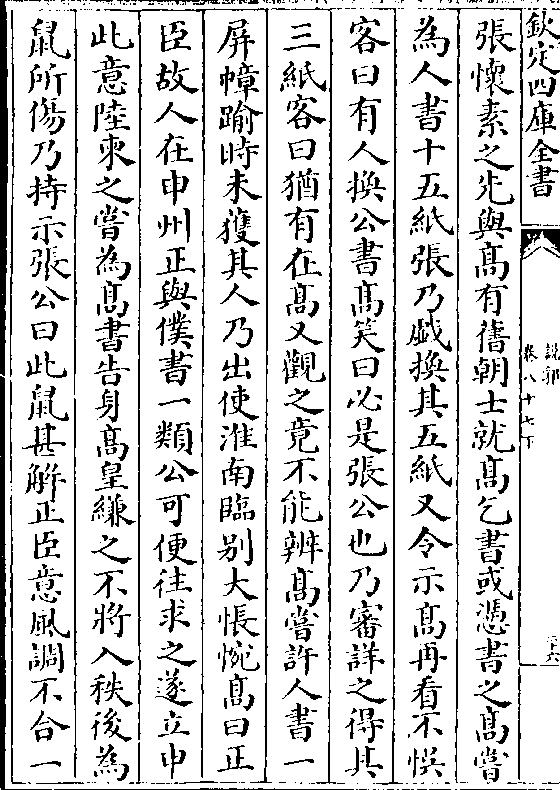 欽定四庫全書
說郛
卷八十七下
三六
張懷素之先與髙有舊朝士就髙乞書或憑書之髙嘗
為人書十五紙張乃戯換其五紙又令示髙再看不悮
客曰有人換公書髙笑曰必是張公也乃審詳之得其
三紙客曰猶有在髙又觀之竟不能辨髙嘗許人書一
屏幛踰時未獲其人乃出使淮南臨别大悵惋髙曰正
臣故人在申州正與僕書一類公可便往求之遂立申
此意陸柬之嘗為髙書告身髙皇縑之不將入秩後為
鼠所傷乃持示張公曰此鼠甚解正臣意風調不合一